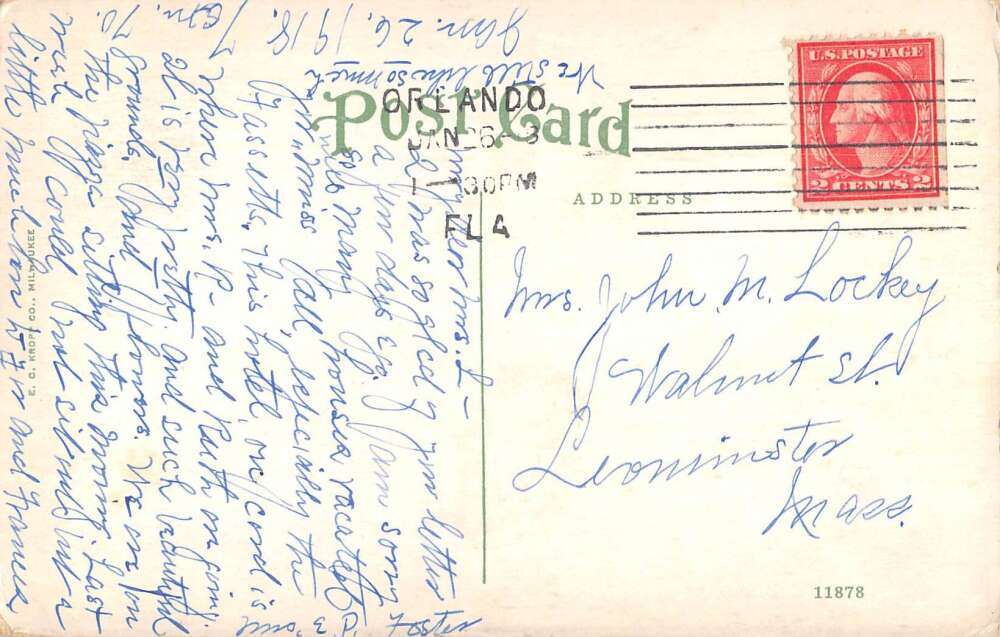 POST CARD
ADDRESS
ORLANDO
JAN 26
30PM
FLA
U.S. POSTAGE
2 CENTS 2
Mrs. John M. Lockey
Walnut St.
Leominster
Mass.
11878
E. C. KROPP CO., MILWAUKEE
Jan. 26, 1918.
Tem. 70.
My dear Mrs. L–
I was so glad of your letter
a few days ago. I am sorry
so many houses vacated
Miss Gall, especially the
Fassetts. This hotel, on card is
where Mrs. R– and Ruth are going.
It is very pretty and such beautiful
grounds, and flowers. We are on
the piazza sitting this morning. Last
week I could not sit out but a
little. much love to and Frances
We still like so much